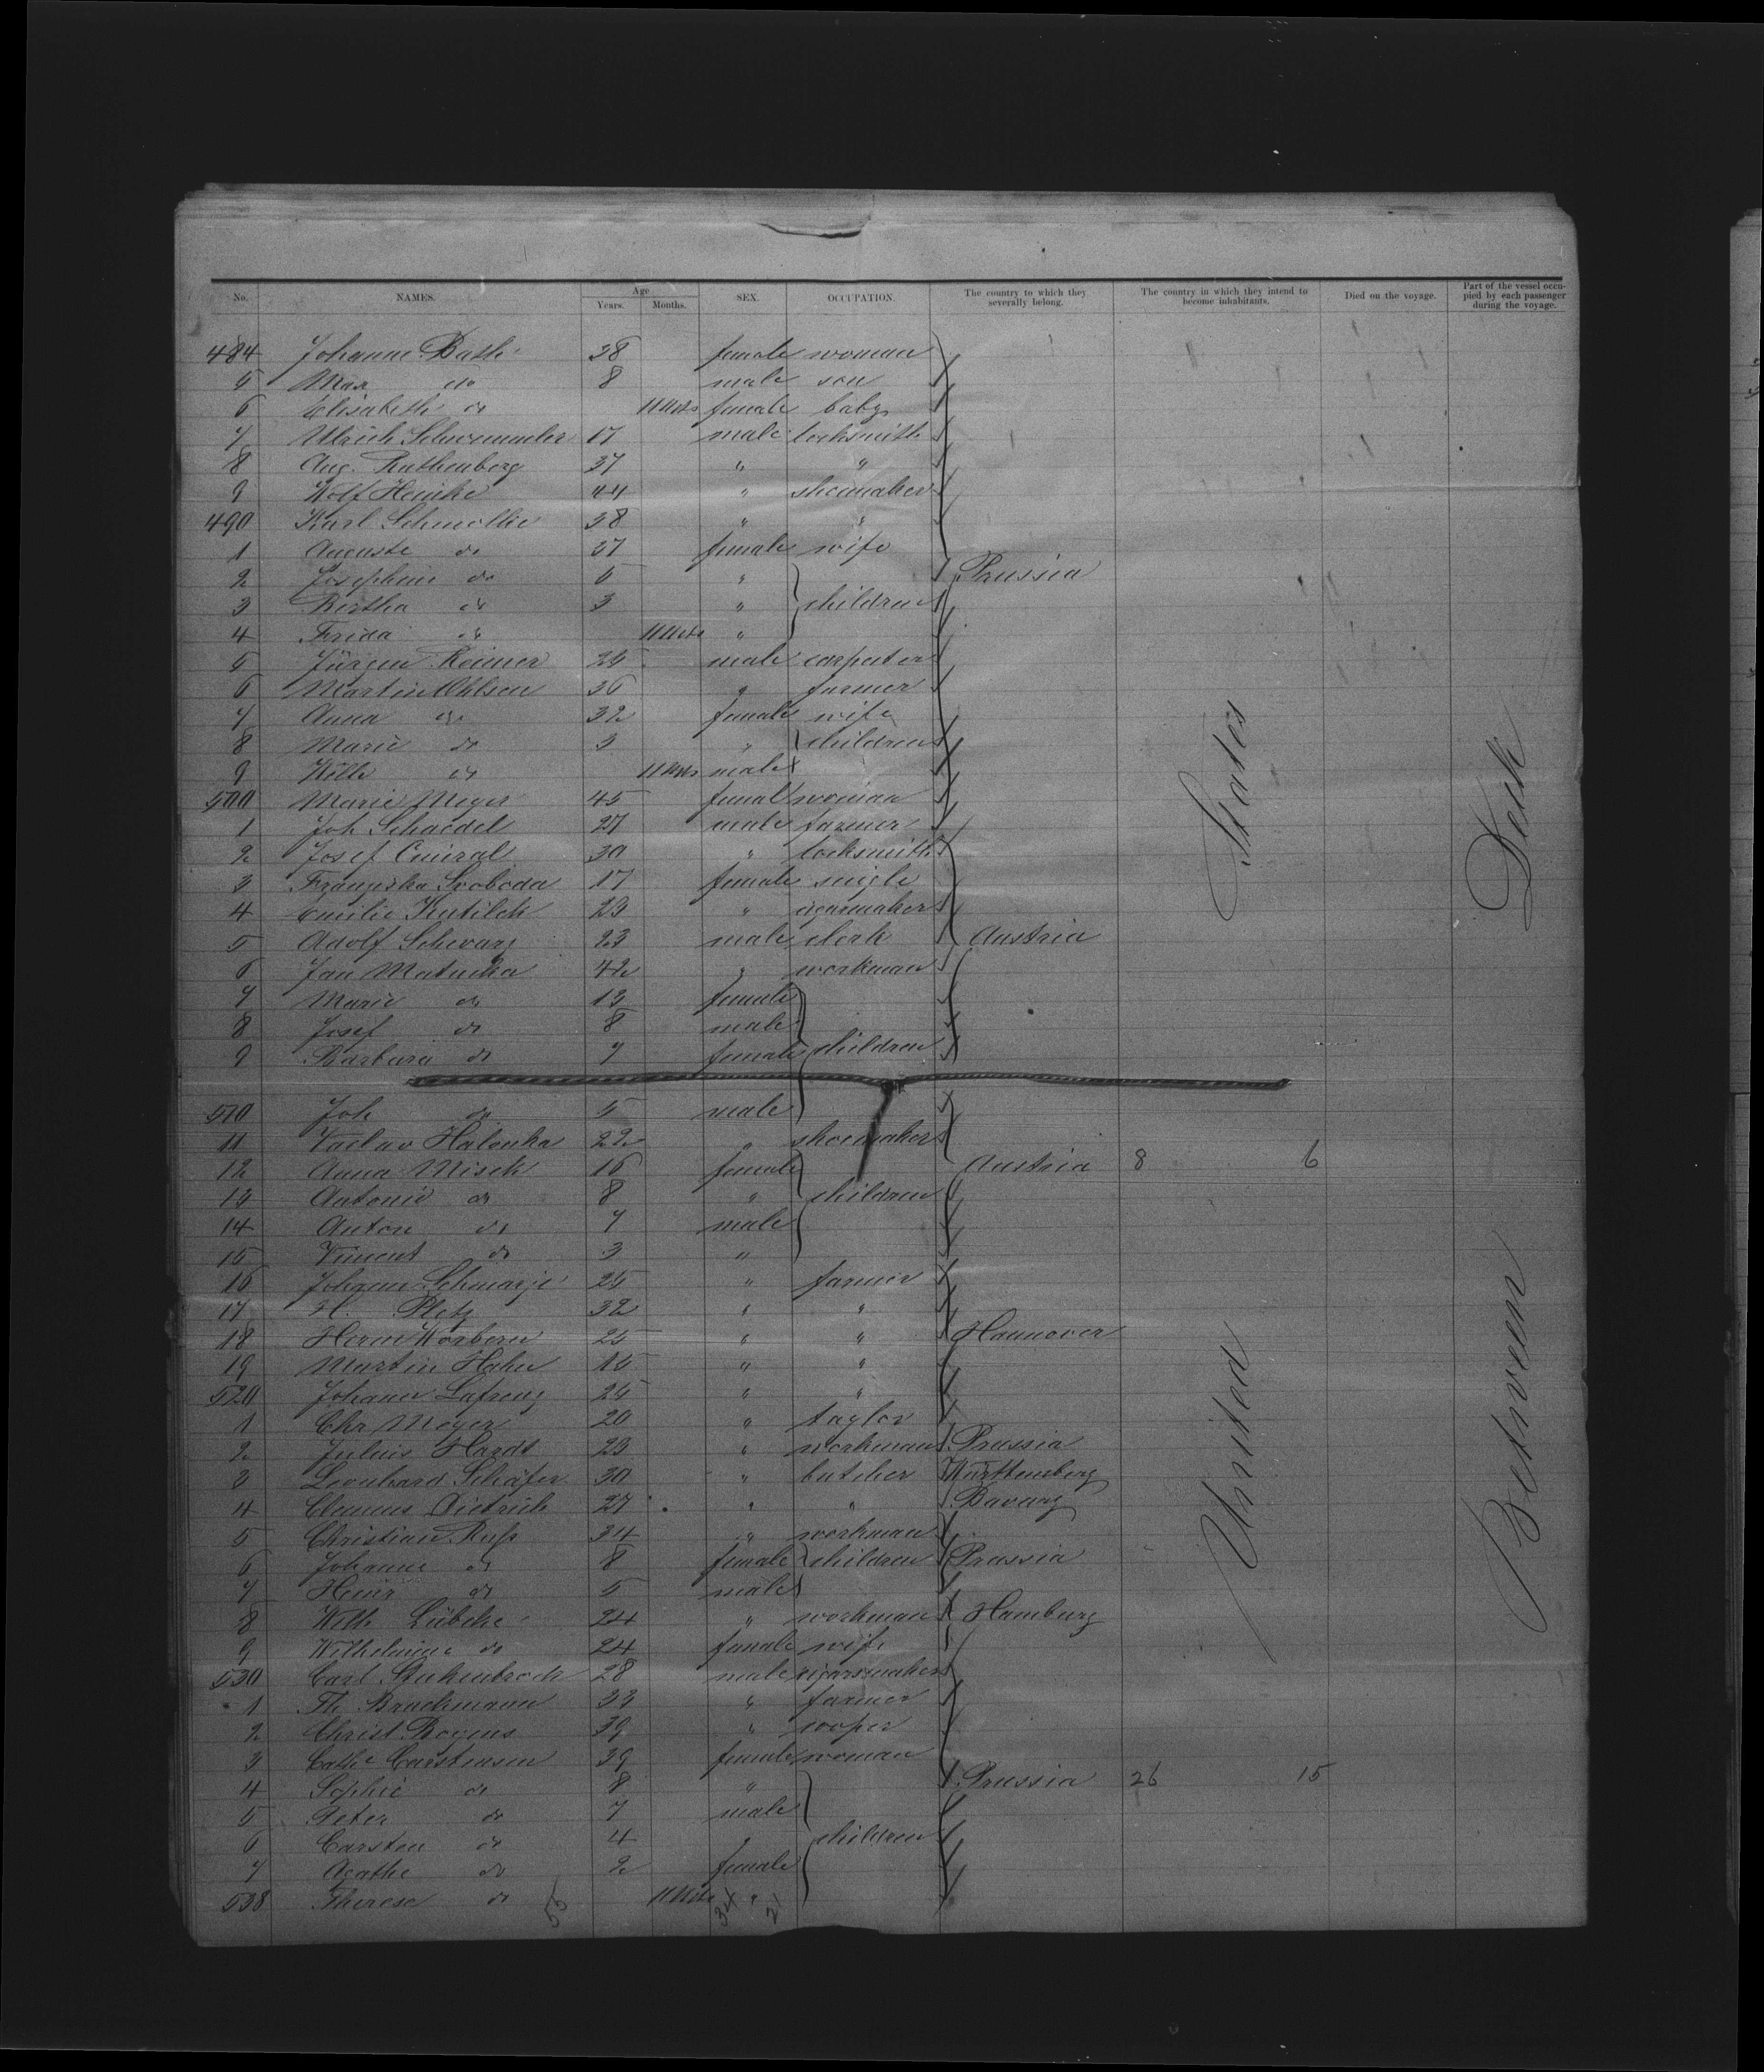 No. NAMES. Age Years. Months. SEX. OCCUPATION. The country to which they severally belong. The country in which they intend to become inhabitants. Died on the voyage. Part of the vessel occupied by each passenger during the voyage.
484 Johanne Bath 38 female woman
5 Max do 8 male son
6 Elisabeth do 11 Mts female baby
7 Ulrich 17 male locksmith
8 Aug. Ruthenberg 37 " "
9 Wolf Heinke 44 " shoemaker
490 Karl 38 " "
1 Auguste do 37 female wife
2 Josephine do 5 " Prussia
3 Bertha do 3 " children
4 Frida do 11 Mts "
5 Jürgen Reimer 25 male carpenter
6 Martin Ohlsen 36 " farmer
7 Anna do 32 female wife
8 Marie do 3 " children
9 Willi do 11 Mts male
500 Marie Meyer 45 female woman
1 Joh Schaedel 27 male farmer
2 Josef 30 " locksmith
3 Franziska Svoboda 17 female single
4 Emilie 23 " cigarmaker
5 Adolf Schwarz 23 male clerk Austria
6 Jan 42 " workman
7 Marie do 13 female
8 Josef do 8 male
9 Barbara do 7 female children
510 Joh do 5 male
11 Vaclav 22 " shoemaker
12 Anna Misek 16 female Austria 8 6
13 Antonie do 8 " children
14 Anton do 7 male
15 Vincent do 3 "
16 Johann Schwarje 25 " farmer
17 H. Pletz 32 " "
18 Herm 25 " " Hannover
19 Martin Hahn 15 " "
520 Johann Lafrenz 25 " "
1 Chr Meyer 20 " taylor
2 Julius Hardt 23 " workman Prussia
3 Leonhard Schäfer 30 " butcher Württemberg
4 Clemens Dietrich 27 " " Bavary
5 Christian Rufs 34 " workman
6 Johanne do 8 female children Prussia
7 Heinr do 5 male
8 Wilh Lübcke 24 " workman Hamburg
9 Wilhelmine do 24 female wife
530 Carl Stukenbrock 28 male cigarsmaker
1 Th Bruckmann 33 " farmer
2 Christ Boyens 39 " cooper
3 Cathe Carstensen 39 female woman
4 Sophie do 8 " Prussia 26 15
5 Peter do 7 male
6 Carsten do 4 " children
7 Agathe do 2 female
538 Therese do 11 Mts "
55 34 21
United States
Between Deck